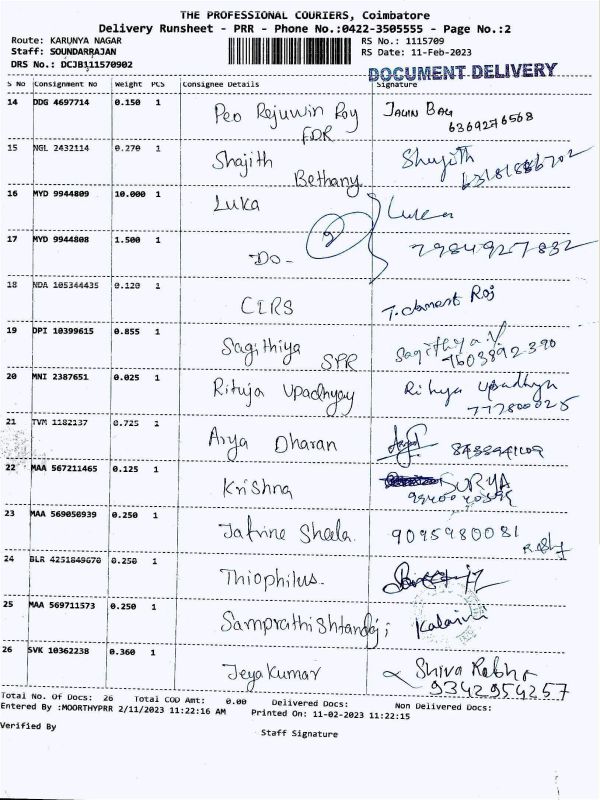 THE PROFESSIONAL COURIERS, Coimbatore
Delivery Runsheet - PRR - Phone No.:0422-3505555 - Page No.:2
Route: KARUNYA NAGAR
RS No.: 1115709
Staff: SOUNDARRAJAN
RS Date: 11-Feb-2023
DRS No.: DCJB111570902
DOCUMENT DELIVERY
S No Consignment No Weight PCS Consignee Details Signature
14 DDG 4697714 0.150 1 Peo Rejuwin Roy
FDR
6369276568
15 NGL 2432114 0.270 1 Shajith
Bethany
Shajith
16 MYD 9944809 10.000 1 Luka
Luka
17 MYD 9944808 1.500 1 Do-
2
7984927832
18 NDA 105344435 0.120 1 CLRS
19 DPI 10399615 0.855 1 Sagithiya
SPR
Sagithya.V
7603892390
20 MNI 2387651 0.025 1 Rituja Upadhyay
Upadhya
21 TVM 1182137 0.725 1 Arya Dharan
22 MAA 567211465 0.125 1 Krishna
SURYA
23 MAA 569050939 0.250 1 Jafrine Sheela.
9095980081
24 BLR 4251849670 0.250 1 Thiophilus.
25 MAA 569711573 0.250 1
26 SVK 10362238 0.360 1 Jeyakumar
Shiva
9342954257
Total No. Of Docs: 26 Total COD Amt: 0.00 Delivered Docs: Non Delivered Docs:
Entered By :MOORTHYPRR 2/11/2023 11:22:16 AM Printed On: 11-02-2023 11:22:15
Verified By
Staff Signature